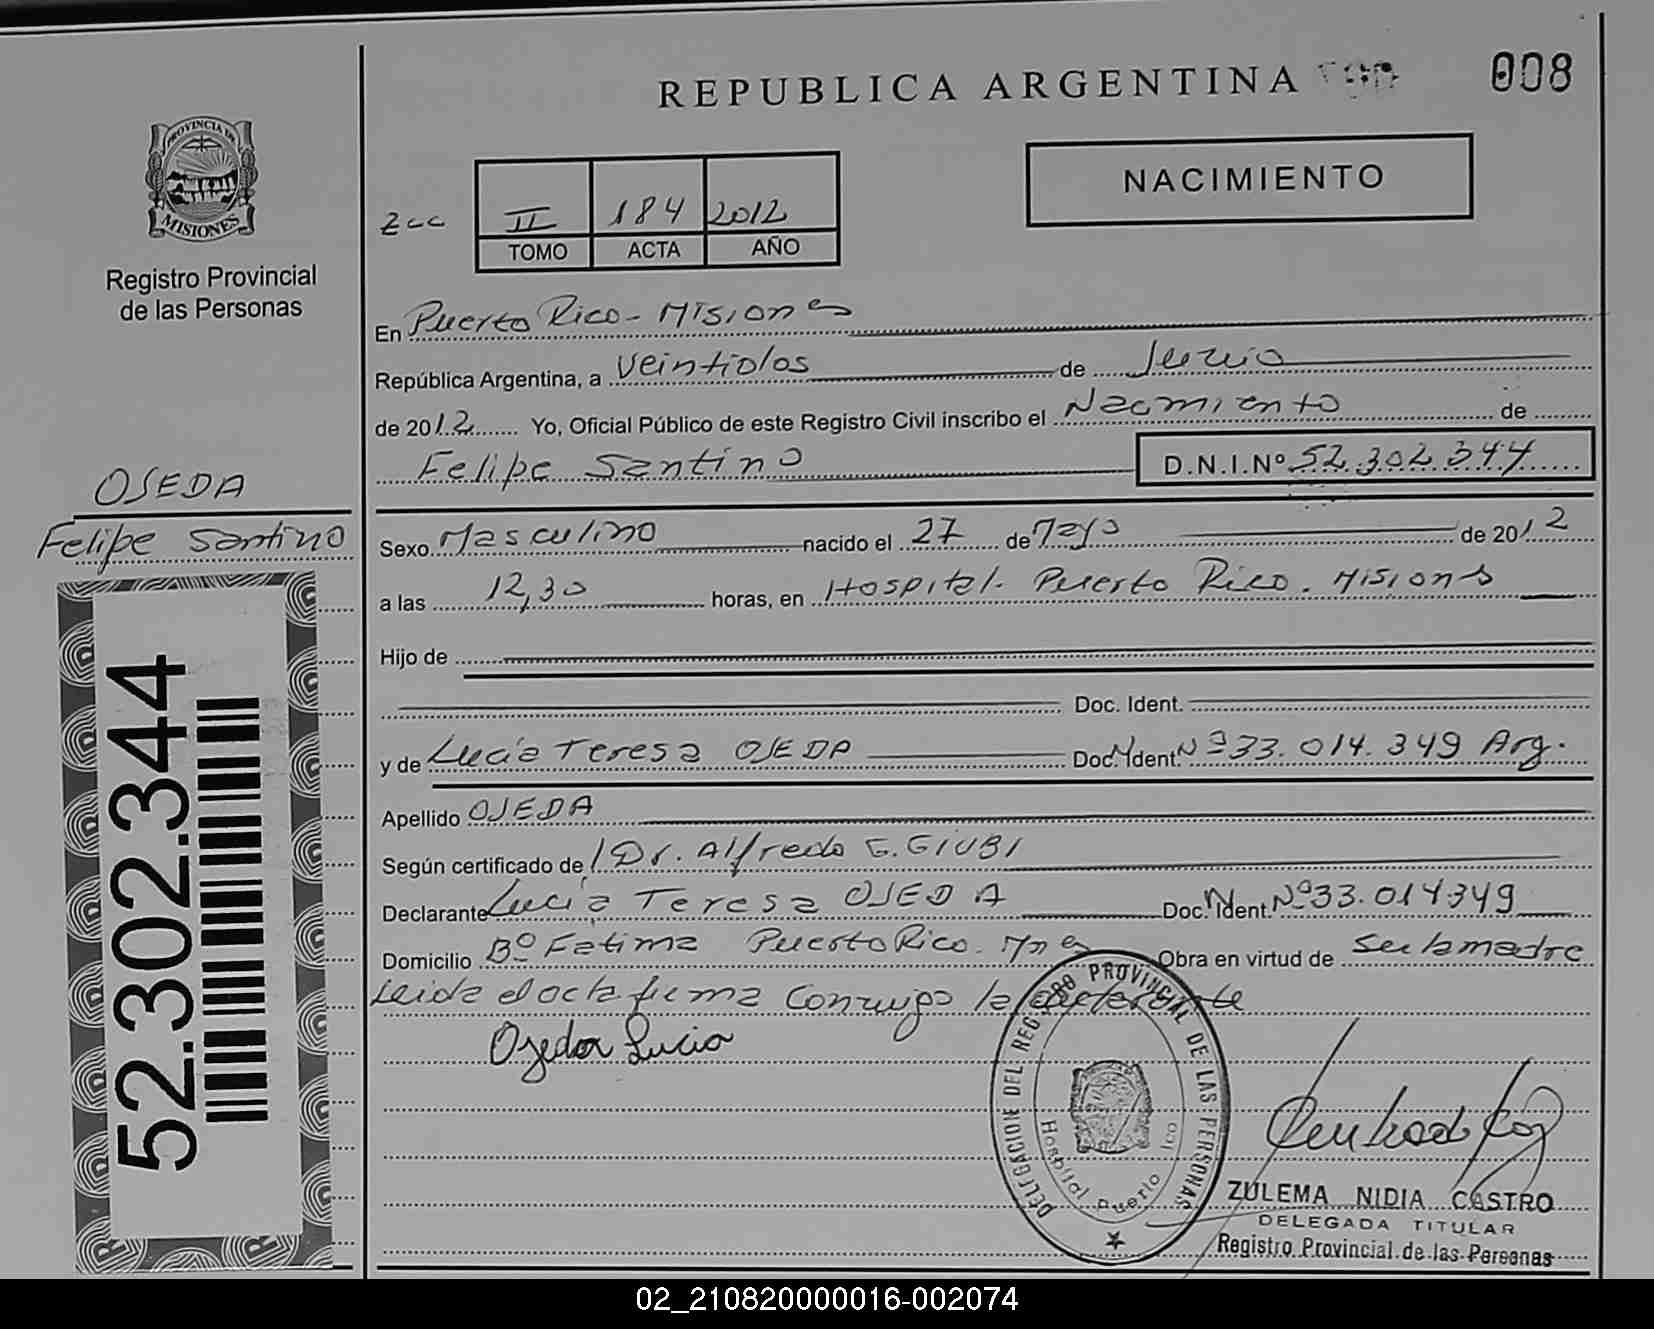 REPUBLICA ARGENTINA 008
PROVINCIA DE
MISIONES
Registro Provincial
de las Personas
NACIMIENTO
II 184 2012
TOMO ACTA AÑO
En Puerto Rico - Misiones
República Argentina, a veintidos de Junio
de 2012 Yo, Oficial Público de este Registro Civil inscribo el Nacimiento de
Felipe Santino D.N.I.Nº 52.302.344
OJEDA
Felipe Santino
Sexo Masculino nacido el 27 de Mayo de 2012
a las 12,30 horas, en Hospital. Puerto Rico. Misiones
Hijo de
Doc. Ident.
y de Lucía Teresa OJEDA Doc. Ident. Nº 33.014.349 Arg.
Apellido OJEDA
Según certificado de Dr. Alfredo G. GIUBI
Declarante Lucía Teresa OJEDA Doc. Ident. Nº 33.014349
Domicilio Bº Fátima Puerto Rico. Mnes Obra en virtud de ser la madre
Leida el acta firma conmigo la declarante
Ojeda Lucia
52.302.344
DELEGACION DEL REGISTRO PROVINCIAL DE LAS PERSONAS
Hospital Puerto Rico
ZULEMA NIDIA CASTRO
DELEGADA TITULAR
Registro Provincial de las Personas
02_210820000016-002074